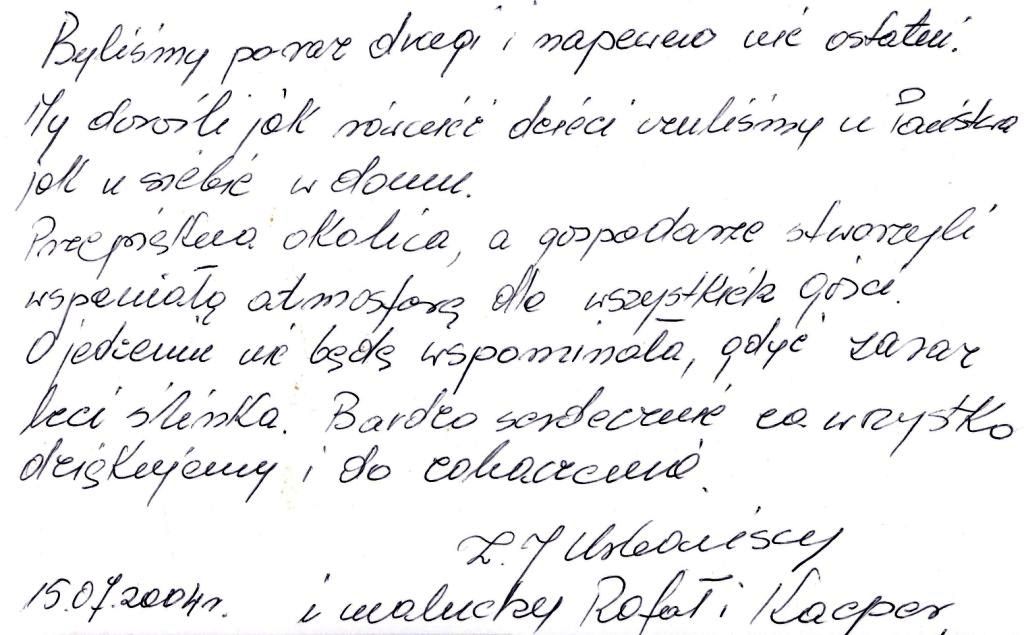 Byliśmy poraz drugi i napewno nie ostatni.
My dorośli jak również dzieci czuliśmy u Państwa
jak u siebie w domu.
Przepiękna okolica, a gospodarze stworzyli
wspaniałą atmosferą dla wszystkich gości.
O jedzeniu nie będę wspominała, gdyż zaraz
leci ślinka. Bardzo serdecznie za wszystko
dziękujemy i do zobaczenia.
Z. J Urbańscy
15.07.2004r. i maluchy Rafał i Kacper